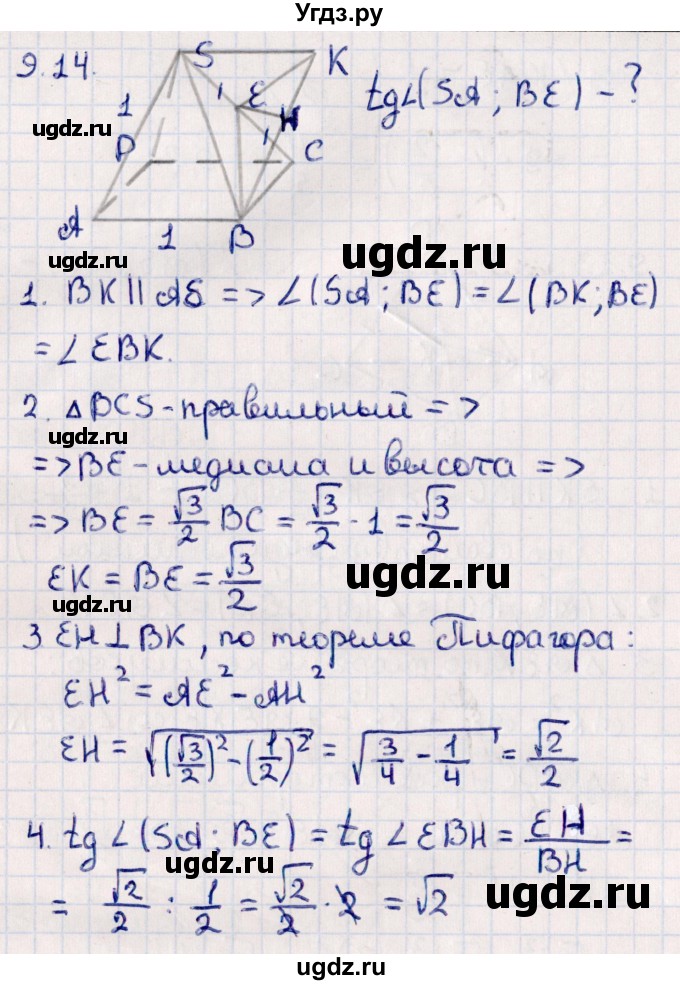 Угдз.ру
9.14.
S
K
1
1
E
H
tg∠(SA; BE) - ?
ugdz.ru
D
1
C
A
1
B
ugdz.ru
1. BK || AS => ∠(SA; BE) = ∠(BK; BE)
= ∠EBK.
2. △BCS - правильный =>
ugdz.ru
=> BE - медиана и высота =>
=> BE = √3/2 BC = √3/2 · 1 = √3/2
EK = BE = √3/2
ugdz.ru
ugdz.ru
3 EH ⊥ BK, по теореме Пифагора:
EH² = AE² - AH²
ugdz.ru
EH = √((√3/2)² - (1/2)²) = √(3/4 - 1/4) = √2/2
4. tg∠(SA; BE) = tg∠EBH = EH/BH =
ugdz.ru
= √2/2 : 1/2 = √2/2 · 2 = √2
ugdz.ru
ugdz.ru